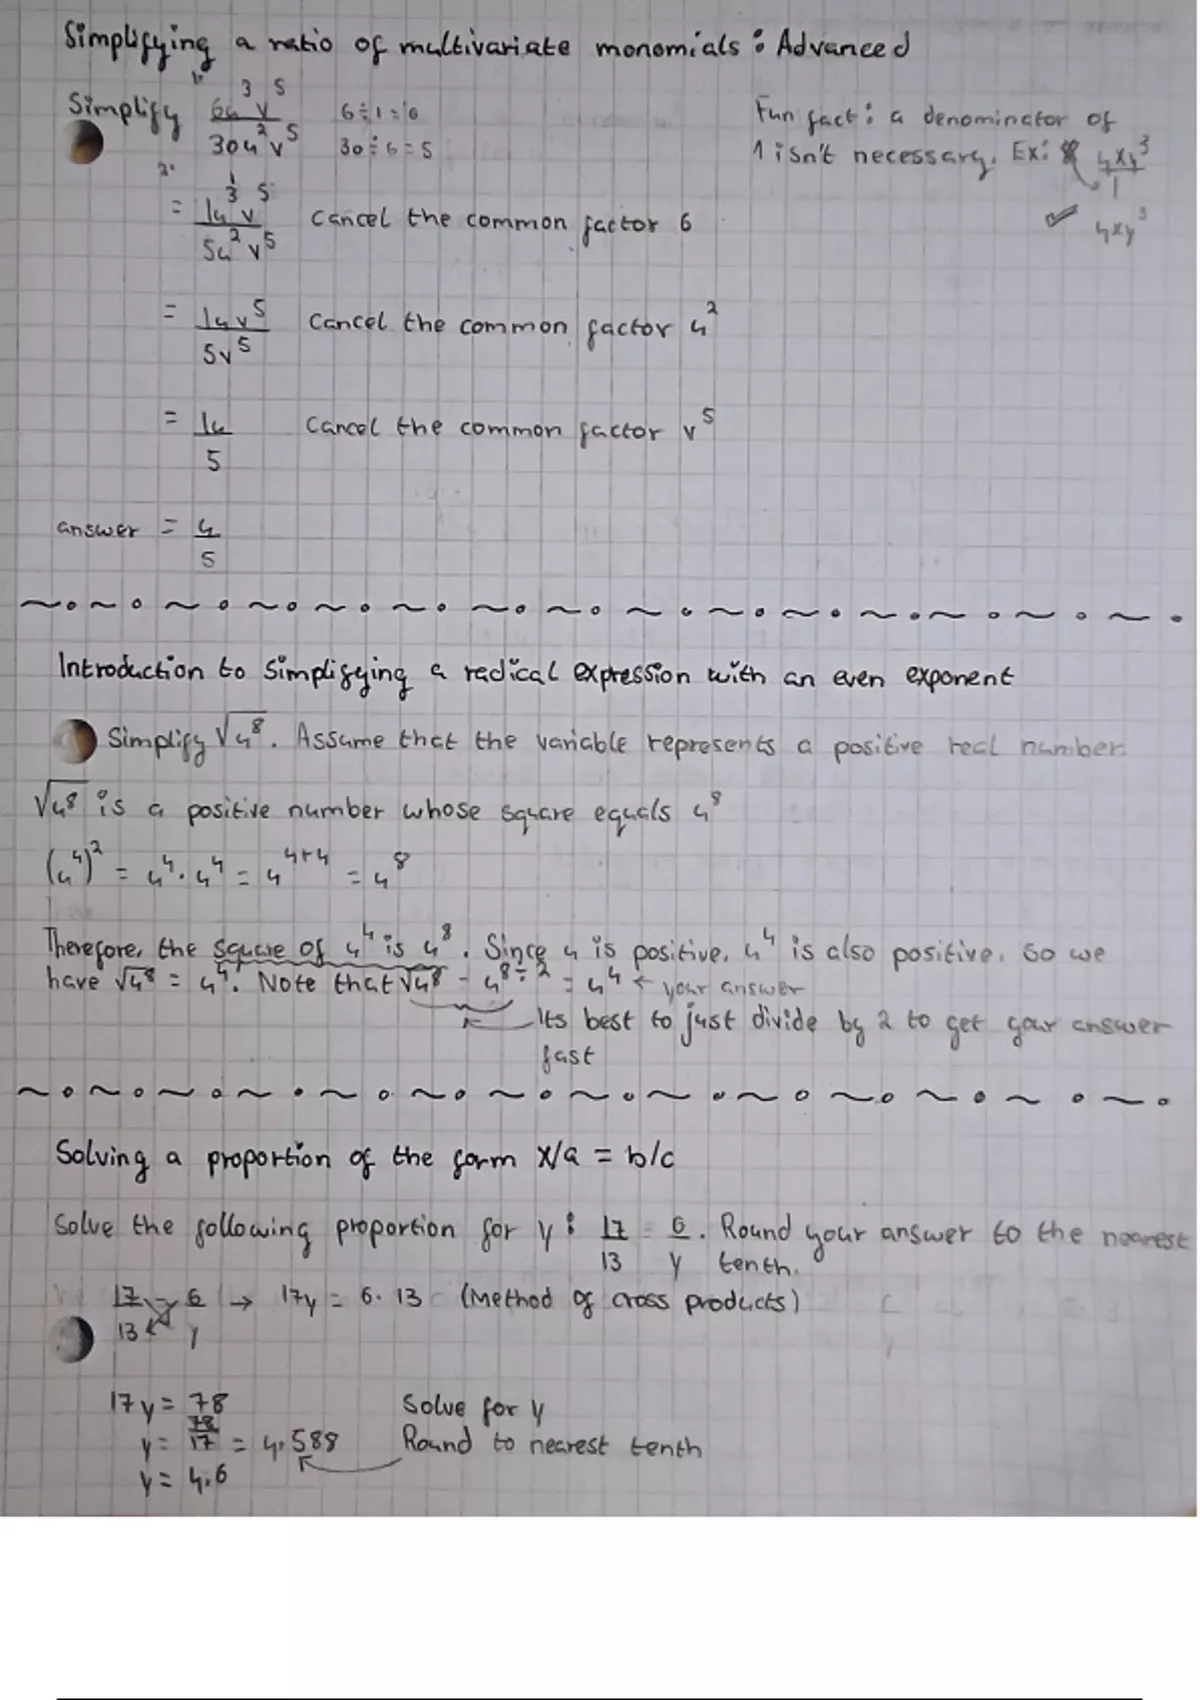 Simplifying a ratio of multivariate monomials: Advanced
Simplify 6u³v⁵/30u²v⁵
6÷1=6
30÷6=5
Fun fact: a denominator of
1 isn't necessary. Ex: 4xy³/1
✓ 4xy³
= 1u³v⁵/5u²v⁵ cancel the common factor 6
= 1uv⁵/5v⁵ cancel the common factor u²
= 1u/5 cancel the common factor v⁵
answer = u/5
Introduction to simplifying a radical expression with an even exponent
Simplify √u⁸. Assume that the variable represents a positive real number.
√u⁸ is a positive number whose square equals u⁸
(u⁴)² = u⁴·u⁴ = u⁴⁺⁴ = u⁸
Therefore, the square of u⁴ is u⁸. Since u is positive, u⁴ is also positive. So we
have √u⁸ = u⁴. Note that √u⁸ = u⁸÷² = u⁴ ← your answer
Its best to just divide by 2 to get your answer
fast
Solving a proportion of the form x/a = b/c
Solve the following proportion for y: 17/13 = 6/y. Round your answer to the nearest
tenth.
17/13 = 6/y → 17y = 6·13 (Method of cross products)
17y = 78 Solve for y
y = 78/17 = 4.588 Round to nearest tenth
y = 4.6